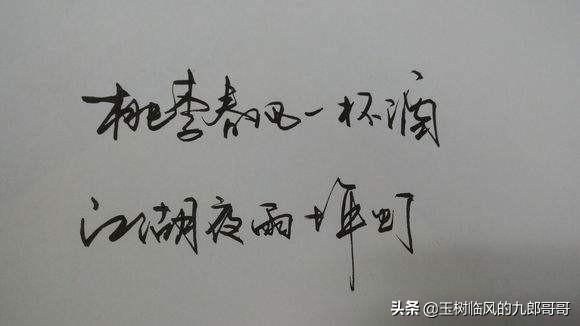 桃李春风一杯酒
江湖夜雨十年灯
头条 @玉树临风的九郎哥哥